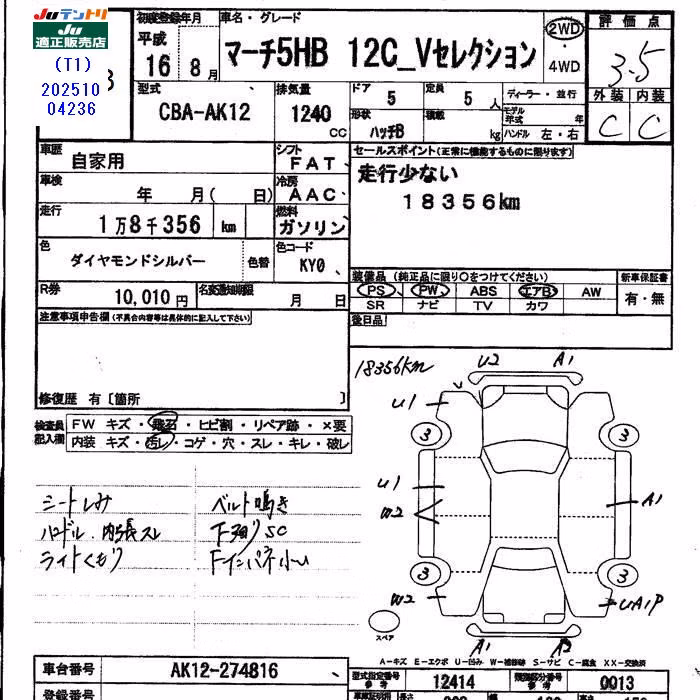 Juテントリ
Ju
適正販売店
(T1)
202510
04236
初度登録年月
平成
16年 8月
車名・グレード
マーチ5HB 12C_Vセレクション
2WD
・
4WD
評価点
3.5
外装 内装
C C
型式
CBA-AK12
排気量
1240 CC
ドア 5
定員 5 人
形状 ハッチB
積載 kg
ディーラー・並行
モデル年式 年
ハンドル 左・右
車歴 自家用
シフト FAT
車検 年 月( 日)
冷房 AAC
走行 1万8千356 km
燃料 ガソリン
色 ダイヤモンドシルバー 色替
色コード KY0
R券 10,010円
名変期限 月 日
セールスポイント(正常に機能するものに限ります)
走行少ない
18356km
装備品 (純正品に限り〇をつけてください)
PS PW ABS エアB AW
SR ナビ TV カワ
新車保証書
有・無
後日品
注意事項申告欄(不具合内容等は具体的に記入して下さい)
修復歴 有〔箇所 〕
検査員記入欄
FW キズ・飛石・ヒビ割・リペア跡・×要
内装 キズ・汚レ・コゲ・穴・スレ・キレ・破レ
シートしみ
ハンドル.内張スレ
ライトくもり
ベルト鳴き
下廻りSC
Fインパネ小U
18356km
U2 A1
U1
3 3
U1
W2
A1
3 3
W2
UA1P
スペア
A1 A2
A-キズ E-エクボ U-凹み W-補修跡 S-サビ C-腐食 XX-交換済
車台番号 AK12-274816
型式指定番号 12414
類別区分番号 0013
登録番号